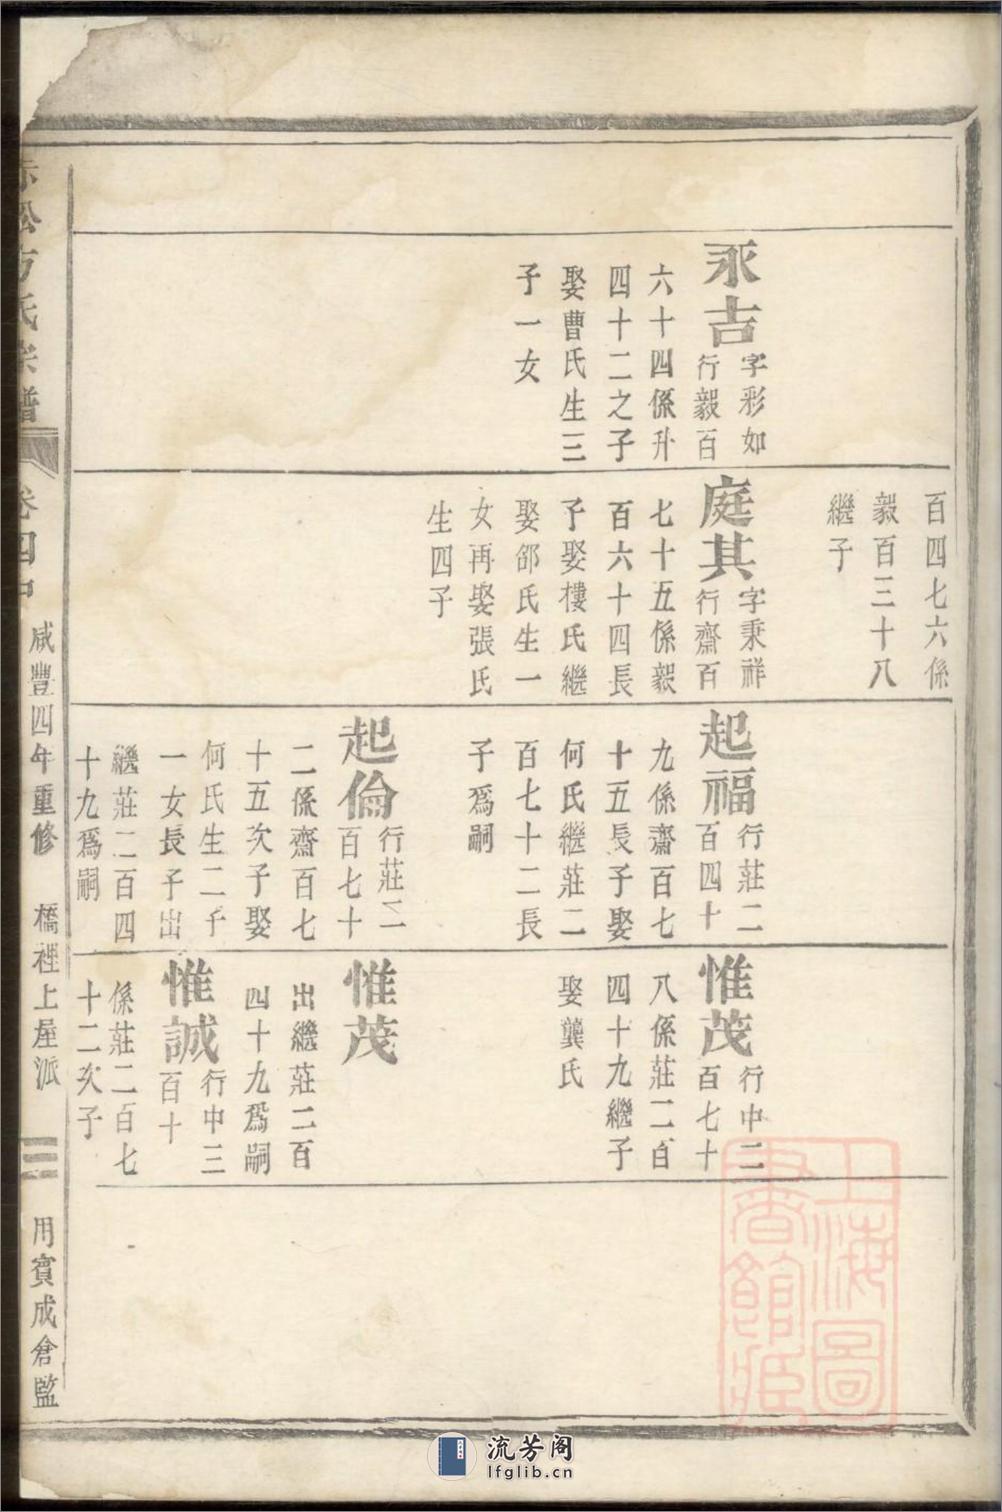 永吉
字彩如
行毅百
六十四係升
四十二之子
娶曹氏生三
子一女
百四七六係
毅百三十八
繼子
庭其
字秉祥
行齋百
七十五係毅
百六十四長
子娶樓氏繼
娶邵氏生一
女再娶張氏
生四子
起福
行莊二
百四十
九係齋百七
十五長子娶
何氏繼莊二
百七十二長
子爲嗣
起倫
行莊二
百七十
二係齋百七
十五次子娶
何氏生二子
一女長子出
繼莊二百四
十九爲嗣
惟茂
行中二
百七十
八係莊二百
四十九繼子
娶龔氏
惟茂
出繼莊二百
四十九爲嗣
惟誠
行中三
百十
係莊二百七
十二次子
赤松方氏宗譜
卷四中
咸豐四年重修 橋裡上屋派
三
用賓成倉監
上海圖
書館藏
流芳阁
lfglib.cn